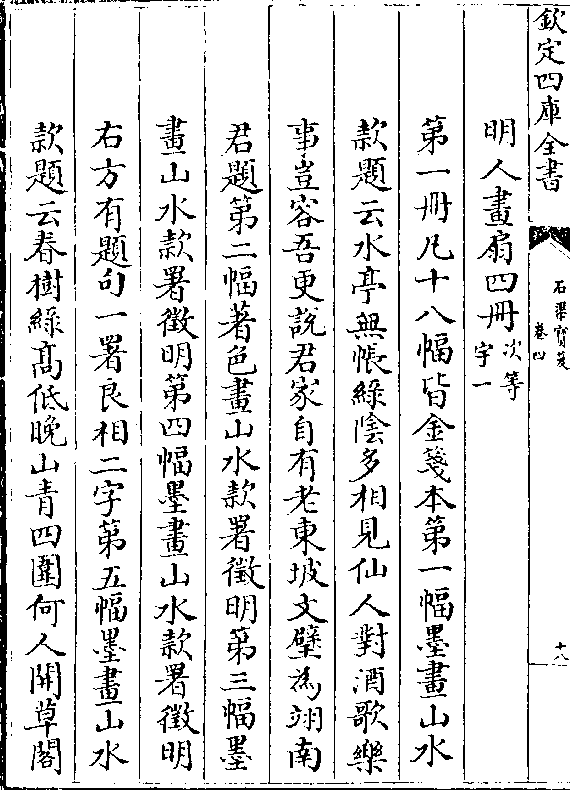 欽定四庫全書
石渠寶笈
卷四
十八
明人畫扇四冊次等
字一
第一冊凡十八幅皆金箋本第一幅墨畫山水
款題云水亭無帳綠陰多相見仙人對酒歌樂
事豈容吾更說君家自有老東坡文壁為朔南
君題第二幅著色畫山水款署徵明第三幅墨
畫山水款署徵明第四幅墨畫山水款署徵明
右方有題句一署良相二字第五幅墨畫山水
款題云春樹綠髙低晚山青四圍何人開草閣